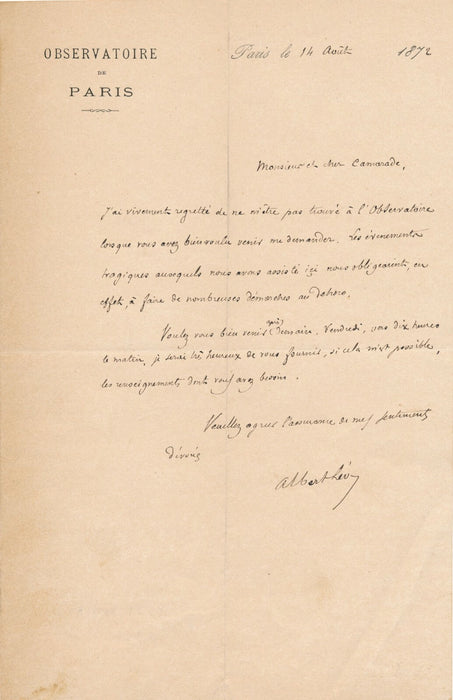 OBSERVATOIRE
DE
PARIS
Paris le 14 Août 1872
Monsieur et cher Camarade,
J'ai vivement regretté de ne m'être pas trouvé à l'Observatoire
lorsque vous avez bien voulu venir me demander. Les évènements
tragiques auxquels nous avons assisté ici nous obligeaient, en
effet, à faire de nombreuses démarches au dehors.
Voulez vous bien venir après demain, Vendredi, vers dix heures
le matin, je serai très heureux de vous fournir, si cela m'est possible,
les renseignements dont vous avez besoin.
Veuillez agréer l'assurance de mes sentiments
dévoués
Albert Lévy